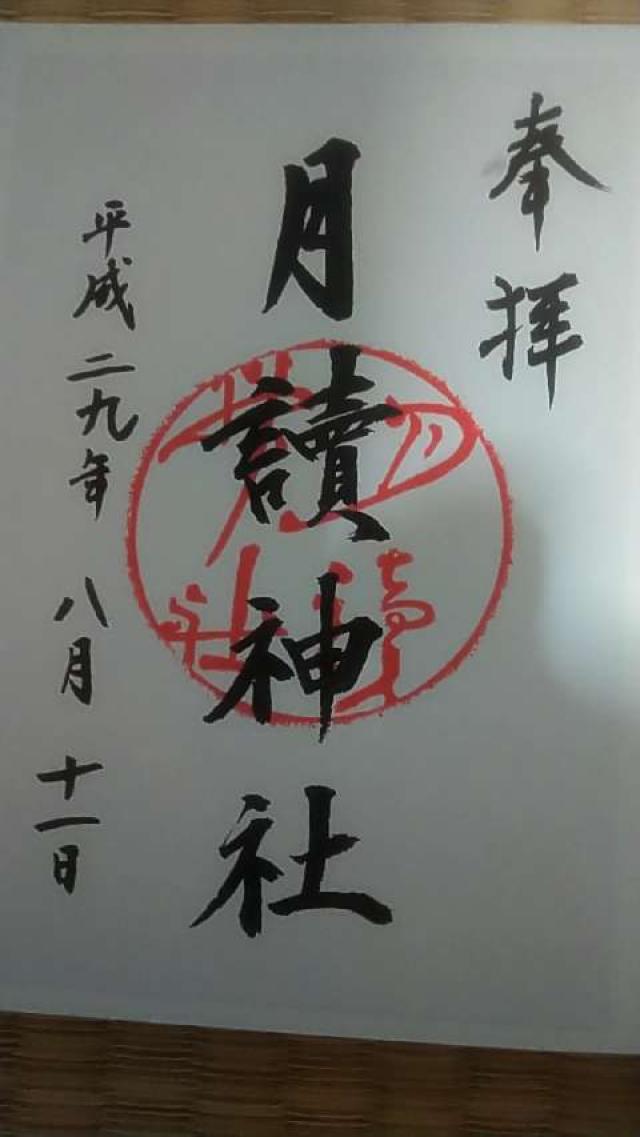 奉拝
月讀神社
平成二九年 八月 十一日